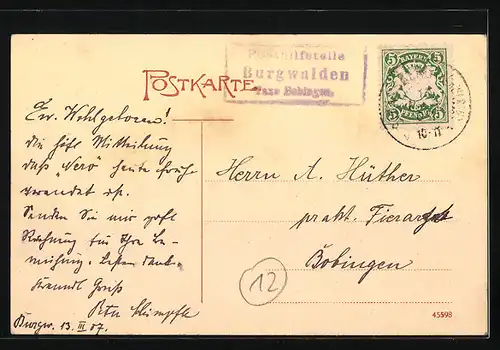 Posthilfstelle
Burgwalden
Taxe Bobingen
POSTKARTE.
BAYERN
5 5
5 5
PFENNIG
Ew. Wohlgeboren!
die höfl. Mitteilung
daß "Nero" heute früh
verendet ist.
Senden Sie mir gefl.
Rechnung für Ihre Be-
mühung. Besten Dank.
Freundl. Gruß
Burgw. 13. III 07.
Herrn A. Hüther
prakt. Tierarzt
Bobingen
12
45598